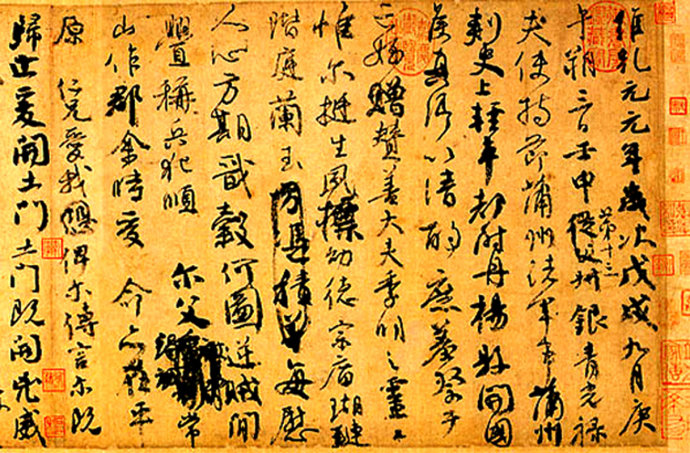 維乾元元年歲次戊戌九月庚
午朔三日壬申第十三叔銀青光祿
夫使持節蒲州諸軍事蒲州
刺史上輕車都尉丹楊縣開國
侯真卿以清酌庶羞祭于
亡姪贈贊善大夫季明之靈曰
惟爾挺生夙標幼德宗廟瑚璉
階庭蘭玉方憑積善每慰
人心方期戩穀何圖逆賊閒
釁稱兵犯順爾父竭誠常
山作郡余時受命亦在平
原仁兄愛我俾爾傳言爾既
歸止爰開土門土門既開凶威